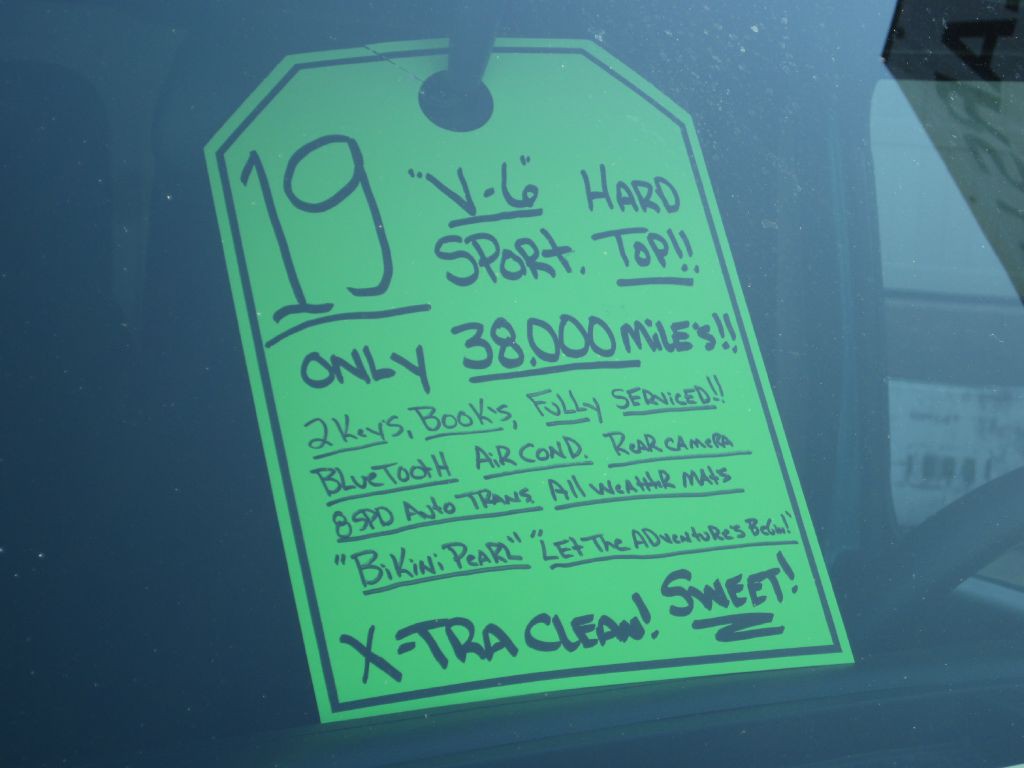 19 "V-6" HARD
SPORT. TOP!!
ONLY 38,000 MILE'S!!
2 KEY'S, BOOK'S, FULLY SERVICED!!
BLUETOOTH AIR COND. REAR CAMERA
8SPD AUTO TRANS ALL WEATHER MATS
"BIKINI PEARL" "LET THE ADVENTURE'S BEGIN!"
X-TRA CLEAN! SWEET!